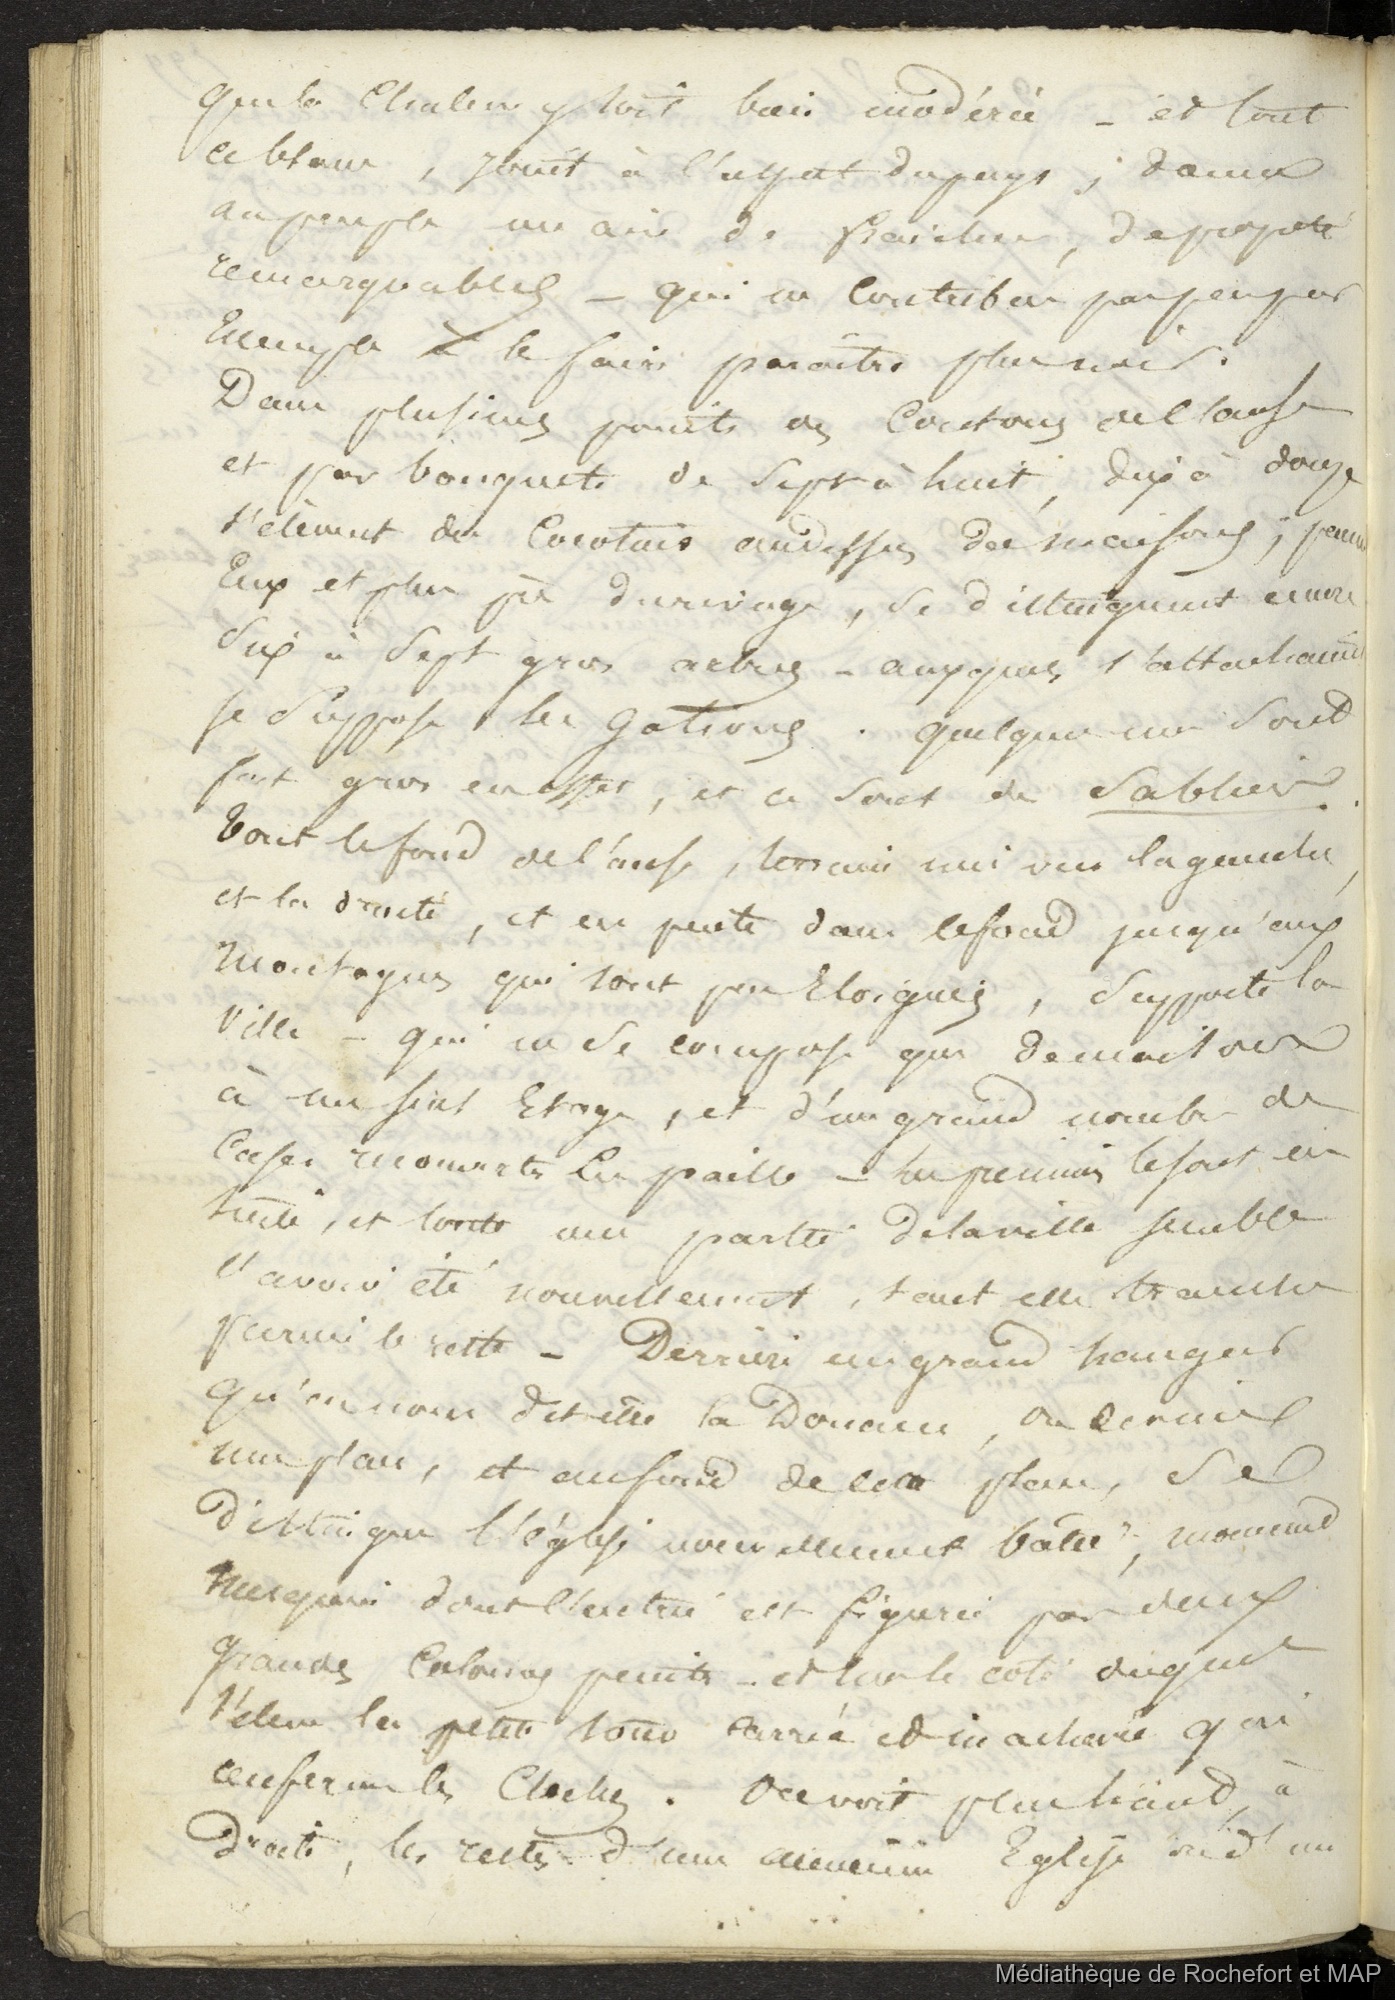 que la Chaleur y soit bien modérée - et tout
ce blanc, joint à l'aspect du pays ; donne
au peuple un air de fraicheur, de propreté
remarquables - qui ne Contribue pas peu par
Exemple à le faire paraître plus noir.
Dans plusieurs points du Contour de l'anse
et par bouquets de Sept à huit, dix à douze
s'élèvent des Cocotiers au dessus des maisons ; parmi
Eux et plus près du rivage, se distinguent encore
Six à Sept gros arbres - auxquels s'attachaient
je Suppose les Galions. quelques uns Sont
fort gros en effet, et ce Sont des Sabliers.
Tout le fond de l'anse, terrain uni vers la gauche,
et la droite, et en pente dans le fond jusqu'aux
Montagnes qui sont peu Eloignées, Supporte la
Ville - qui ne se compose que de maisons
à un seul Etage, et d'un grand nombre de
Cases recouvertes En paille - les premières le sont en
tuile, et toute une partie de la ville semble
l'avoir été nouvellement, tant elle tranche
parmi le reste - Derrière un grand hangar
qu'on nous dit être la Douane, on devine
une place, et au fond de cette place, se
distingue l'église nouvellement bâtie, monument
mesquin dont l'entrée est figurée par deux
grandes Colonnes peintes - et sur le coté duquel
s'élève la petite tour carrée et inachevée qui
renferme les Cloches. On voit plus haut, à
Droite, les restes d'une ancienne Eglise et d'un
Médiathèque de Rochefort et MAP